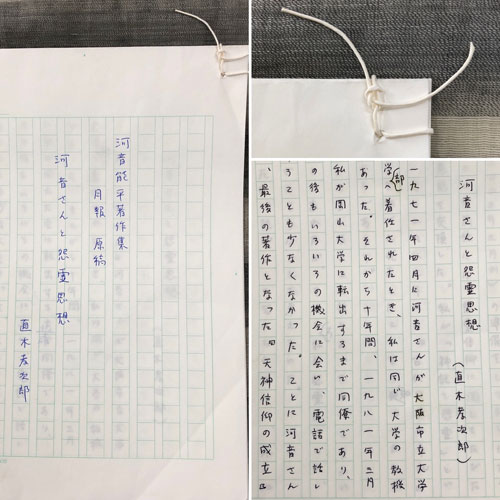 河音能平著作集
月報 原稿
河音さんと怨霊思想
直木孝次郎
河音さんと怨霊思想 (直木孝次郎)
一九七一年四月に河音さんが大阪市立大学
学部へ着任されたとき、私は同じ大学の教授
あった。それから十年間、一九八一年三月
私が岡山大学に転出するまで同僚であり、
の後もいろいろの機会に会い、電話で話し
ることも少なくなかった。ことに河音さん
、最後の著作となった『天神信仰の成立』